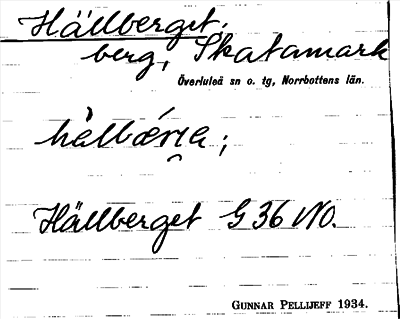 Hällberget.
berg, Skatamark
Överluleå sn o. tg, Norrbottens län.
Hällberget G 36 NO.
GUNNAR PELLIJEFF 1934.